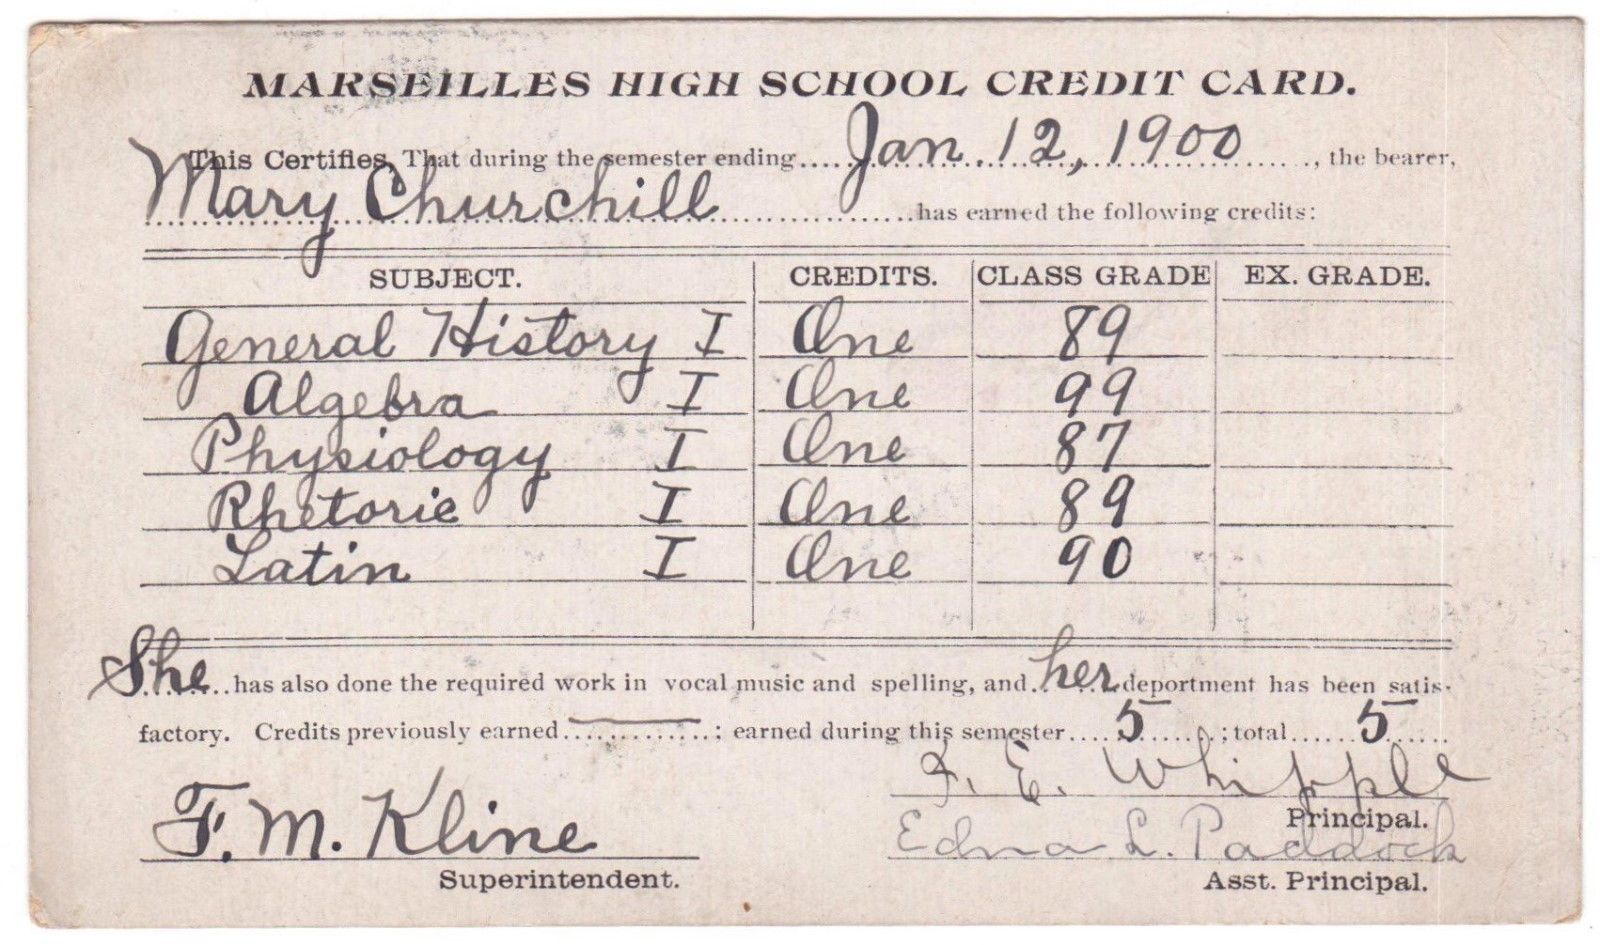 MARSEILLES HIGH SCHOOL CREDIT CARD.
This Certifies, That during the semester ending Jan. 12, 1900, the bearer,
Mary Churchill has earned the following credits:
SUBJECT. CREDITS. CLASS GRADE EX. GRADE.
General History I One 89
Algebra I One 99
Physiology I One 87
Rhetoric I One 89
Latin I One 90
She has also done the required work in vocal music and spelling, and her deportment has been satis-
factory. Credits previously earned ——; earned during this semester 5; total 5
F. E. Whipple
Principal.
F. M. Kline
Edna L. Paddock
Superintendent.
Asst. Principal.